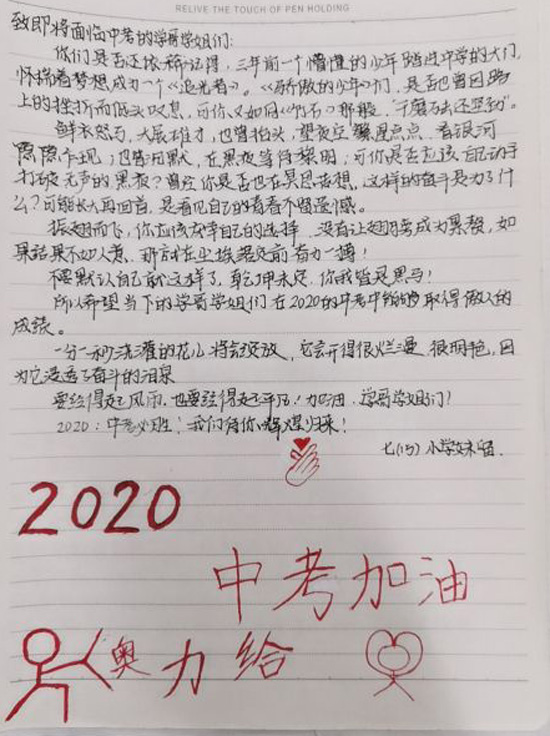 RELIVE THE TOUCH OF PEN HOLDING
致即将面临中考的学哥学姐们:
你们是否还依稀记得,三年前一个懵懂的少年踏进中学的大门,
怀揣着梦想成为一个《追光者》。《骄傲的少年》们,是否也曾因路
上的挫折而低头叹息,可你又如同《竹石》那般,"千磨万击还坚劲"。
鲜衣怒马,大展雄才,也曾抬头,望夜空繁星点点,看银河
隐隐乍现;也曾沉默,在黑夜等待黎明;可你是否应该自己动手
打破无声的黑夜?曾经你是否也在冥思苦想,这样的奋斗是为了什
么?可能长大再回首,是看见自己的青春不留遗憾。
振翅而飞,你应该在等自己的选择,没有让翅膀成为累赘,如
果结果不如人意,那就在尘埃落定前奋力一搏!
不要默认自己就这样了,乾坤未定,你我皆是黑马!
所以希望当下的学哥学姐们在2020的中考中能够取得傲人的
成绩。
一分一秒浇灌的花儿将会绽放,它会开得很烂漫,很明艳,因
为它浸透了奋斗的泪泉
要经得起风雨,也要经得起平凡!加油,学哥学姐们!
2020:中考必胜!我们待你辉煌归来!
七(15)小学妹留.
2020
中考加油
奥力给